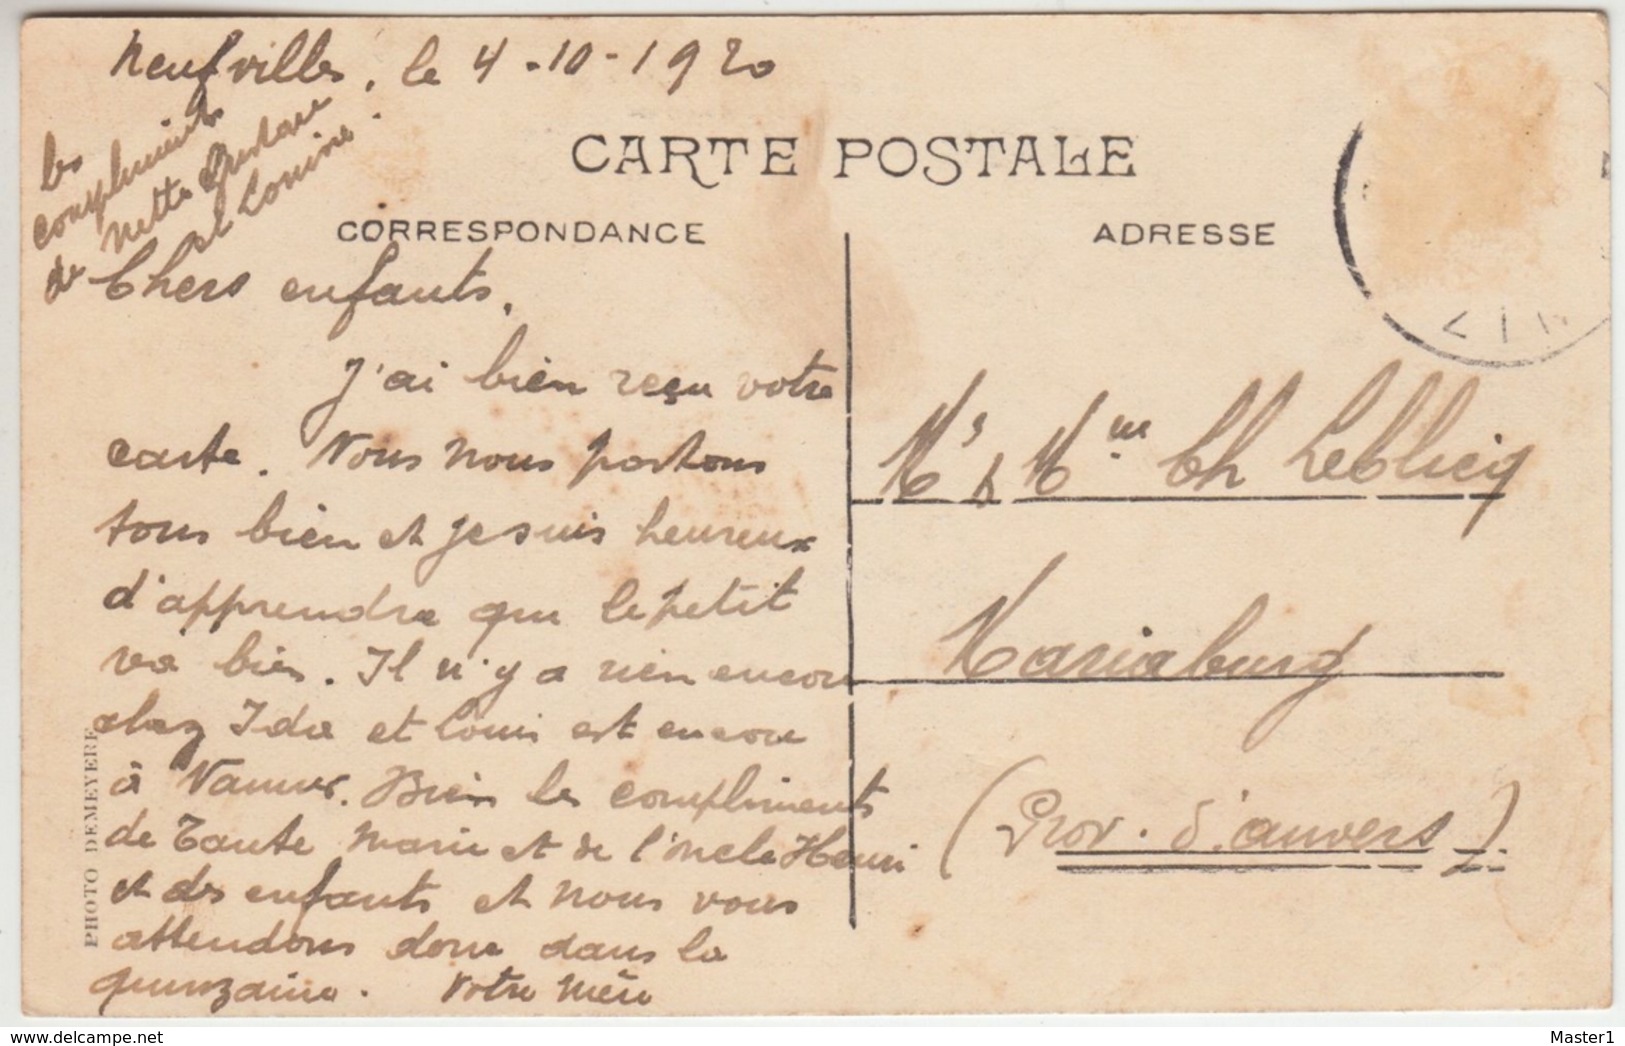 Neufvilles, le 4-10-1920
les
compliments
de Nette Gustave
et Louise.
CARTE POSTALE
CORRESPONDANCE
ADRESSE
Chers enfants,
J'ai bien reçu votre
carte. Nous nous portons
tous bien et je suis heureux
d'apprendre que le petit
va bien. Il n'y a rien encore
chez Ida et Louis est encore
à Namur. Bien les compliments
de Tante Marie et de l'oncle Henri
et des enfants et nous vous
attendons donc dans la
quinzaine. Votre Mère
Mr & Mme Ch Leblicq
Mariaburg
(Prov. d'anvers)
PHOTO DEMEYERE
delcampe.net
Master1